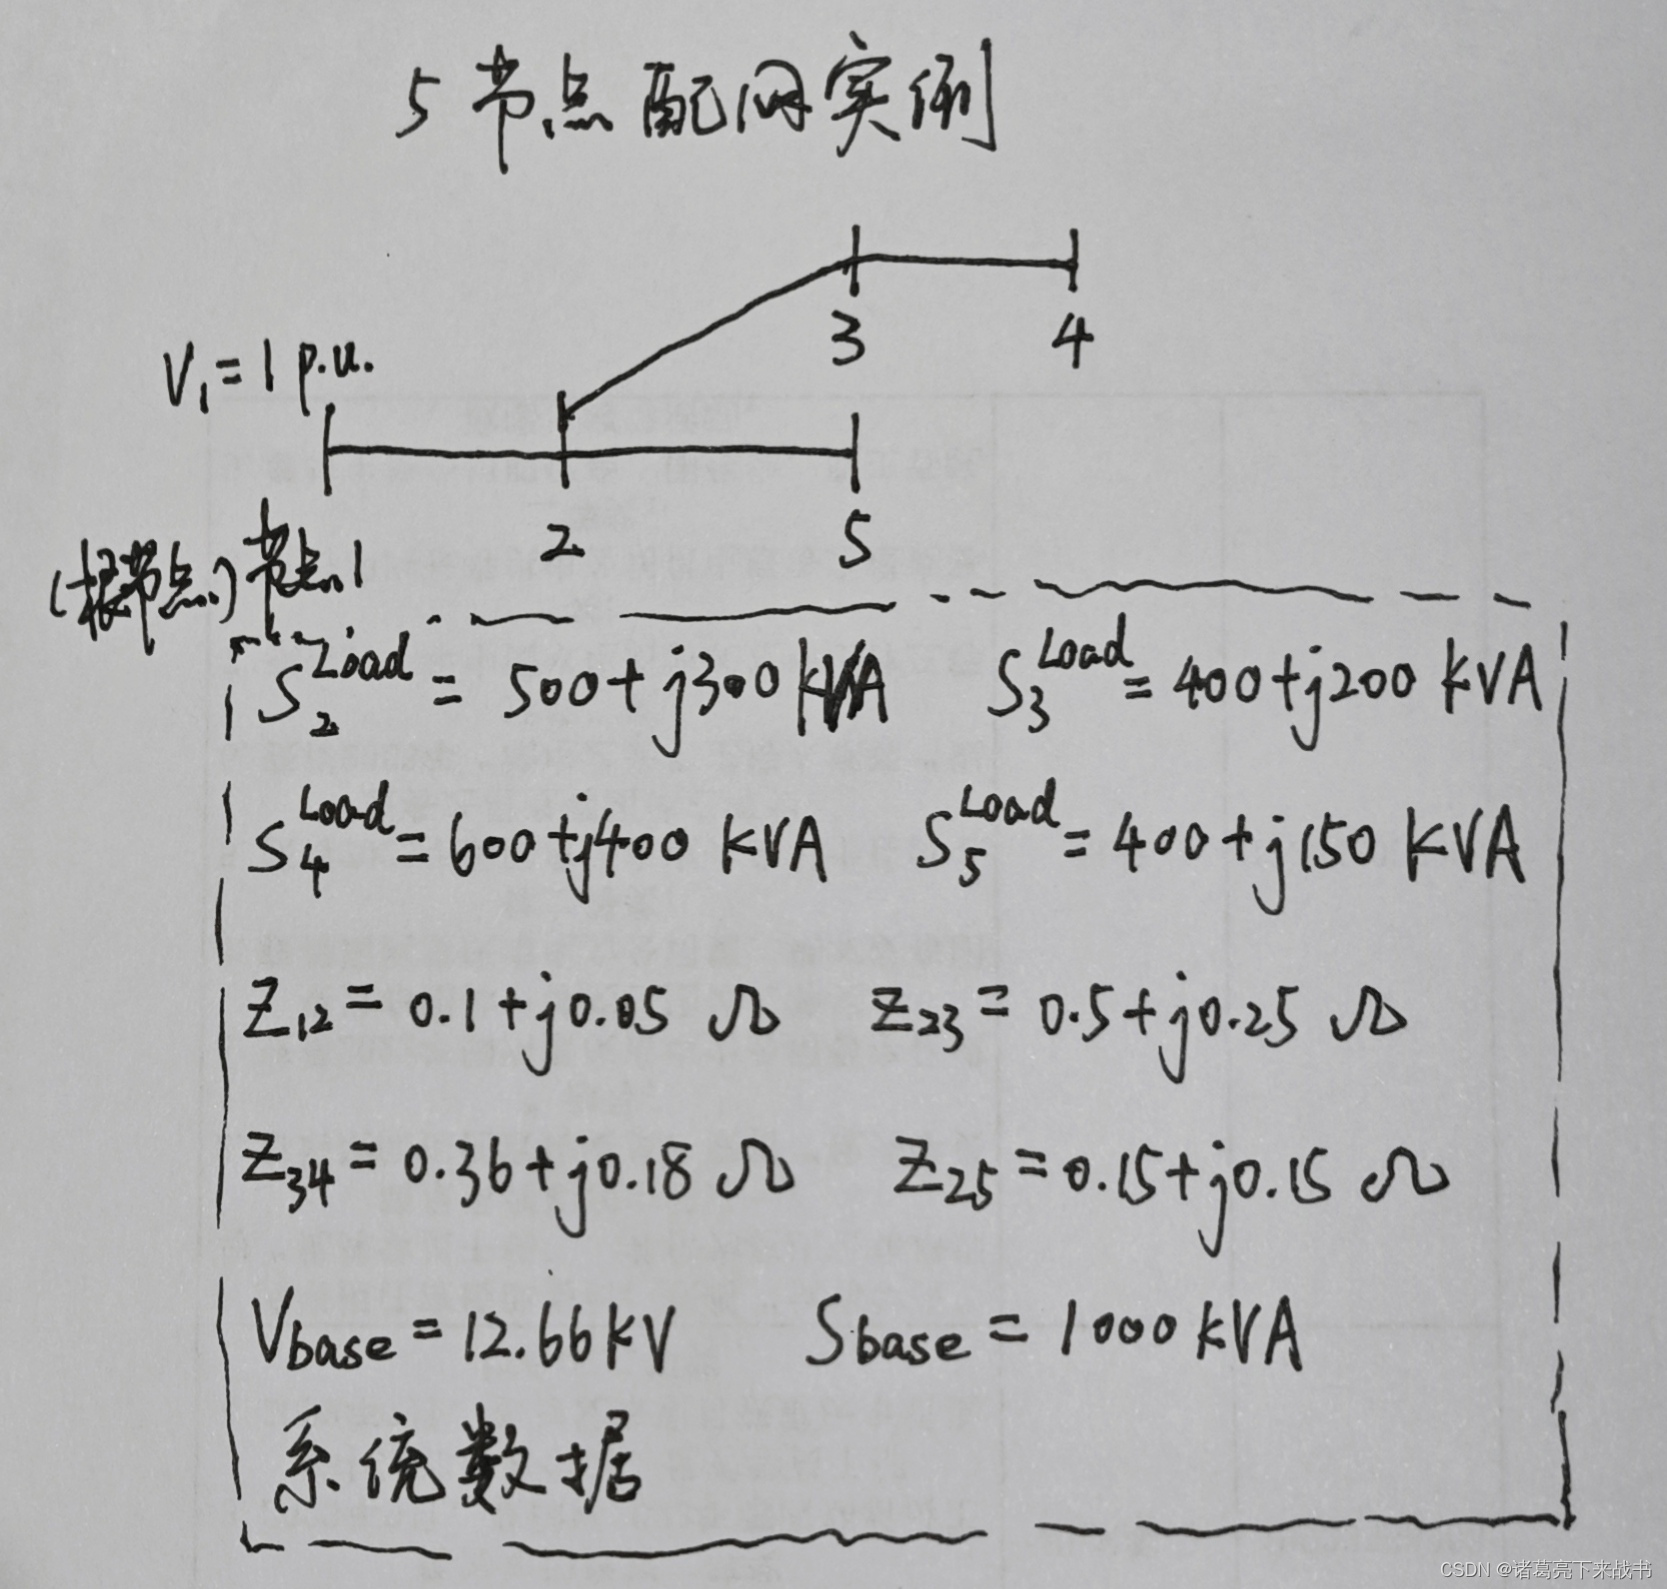 5节点配网实例
3
4
V₁=1 p.u.
2
5
(根节点) 节点1
S₂^Load = 500+j300 kVA S₃^Load = 400+j200 kVA
S₄^Load = 600+j400 kVA S₅^Load = 400+j150 kVA
Z₁₂ = 0.1+j0.05 Ω Z₂₃ = 0.5+j0.25 Ω
Z₃₄ = 0.36+j0.18 Ω Z₂₅ = 0.15+j0.15 Ω
Vbase = 12.66kV Sbase = 1000 kVA
系统数据
CSDN @诸葛亮下来战书